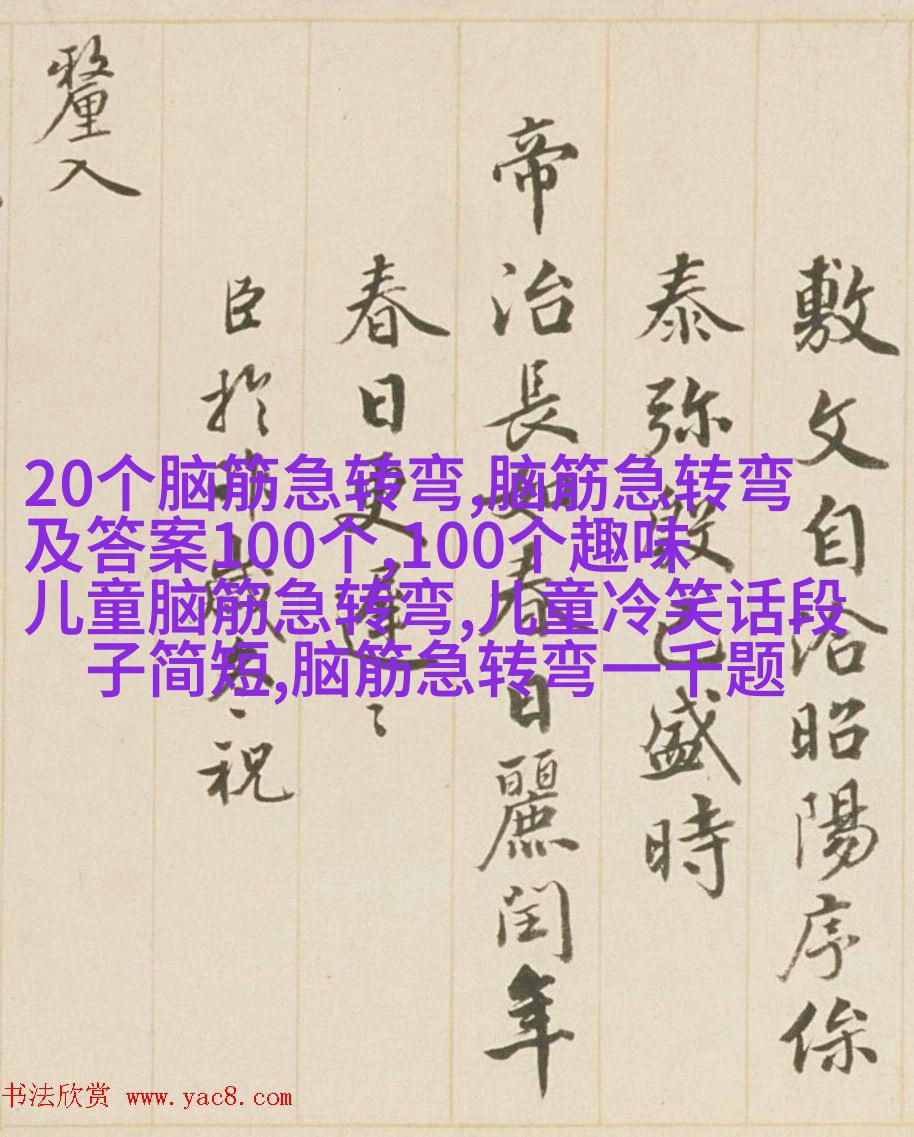 敷文自洽昭陽序條
泰弥殷已盛時
帝治長如春日麗閏年
春日更遲〻
臣於
祝
釐入
20个脑筋急转弯,脑筋急转弯
及答案100个,100个趣味
儿童脑筋急转弯,儿童冷笑话段
子简短,脑筋急转弯一千题
书法欣赏 www.yac8.com